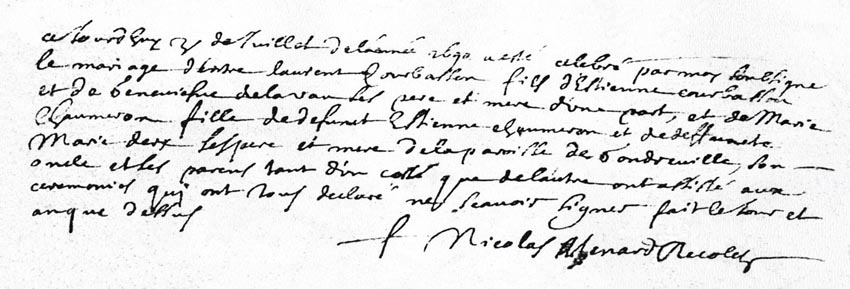 ce Jourdhuy 21 de Juillet delannée 1690 a esté celebré par moy soubsigné
le mariage dentre laurent Courbasson fils dEstienne courbasson
et de Geneviefve delavau ses pere et mere dune part, et de Marie
Chaumeron fille de defunct Estienne chaumeron et de deffuncte
Marie ses pere et mere dela paroisse de Gondreville, son
oncle et les parens tant dun costé que delautre ont assisté aux
ceremonies qui ont tous declaré ne scavoir signer fait le Jour et
an que dessus
f Nicolas Recolet